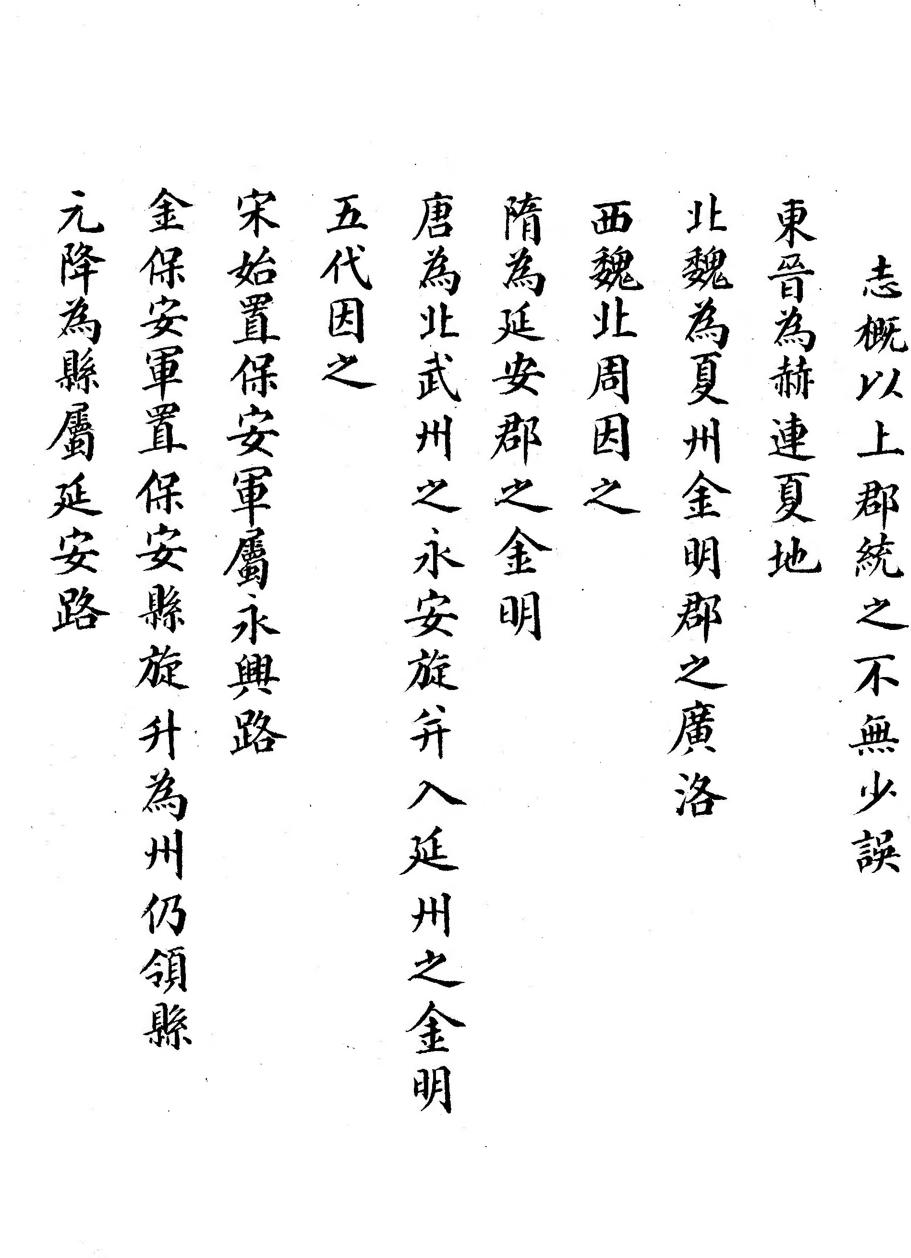 志概以上郡統之不無少誤
東晉為赫連夏地
北魏為夏州金明郡之廣洛
西魏北周因之
隋為延安郡之金明
唐為北武州之永安旋并入延州之金明
五代因之
宋始置保安軍屬永興路
金保安軍置保安縣旋升為州仍領縣
元降為縣屬延安路